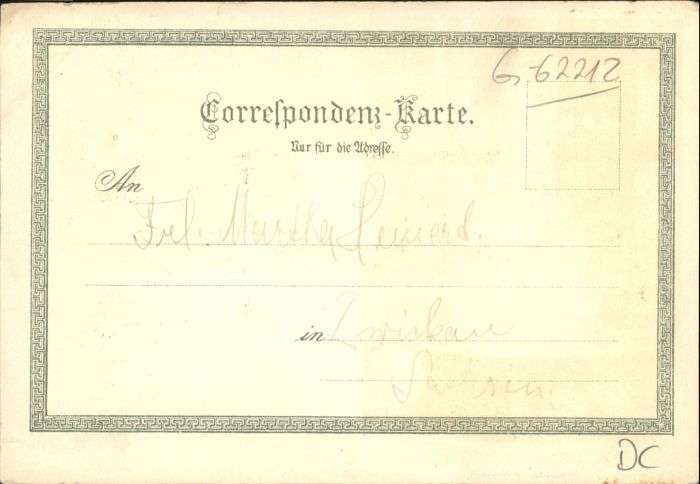 G 62212
Correſpondenz-Karte.
Nur für die Adreſſe.
An
Frl. Martha
in Zwickau
Sachsen.
DC